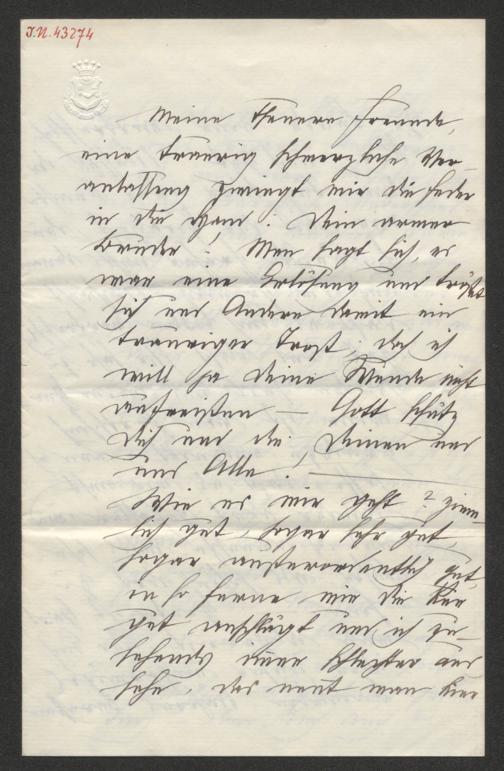 I.N. 43274
Meine theuere Freunde,
eine traurig schmerzliche Ver-
anlassung zwingt mir die Feder
in die Hand: Dein armer
Bruder! Man sagt sich, es
war eine Erlösung und tröstet
sich und Andere damit ein
trauriger Trost, doch ich
will ja deine Wunde nicht
aufreißen — Gott schütz
Dich und die Deinen und
uns Alle! —
Wie es mir geht? ziem-
lich gut, sogar sehr gut,
sogar außerordentlich gut,
in so ferne mir die Kur
gut anschlägt und ich zu-
sehends immer schlechter aus-
sehe, das nennt man hier